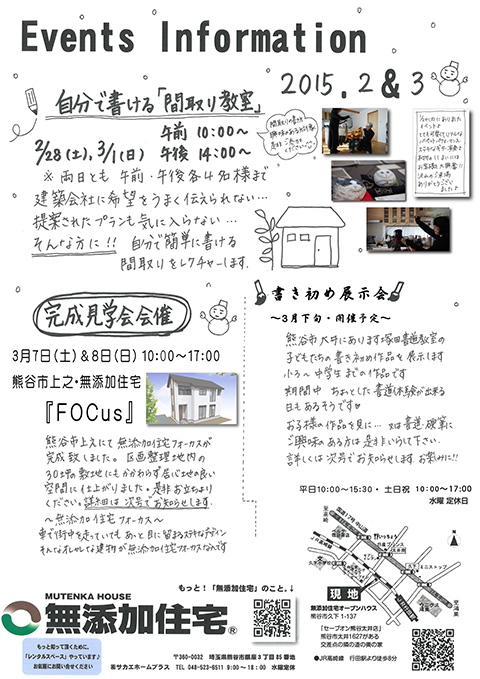 Events Information
2015.2&3
自分で書ける「間取り教室」
2/28(土),3/1(日) 午前 10:00〜
午後 14:00〜
※両日とも 午前・午後各4名様まで
建築会社に希望をうまく伝えられない…
提案されたプランも気に入らない…
そんな方に!! 自分で簡単に書ける
間取りをレクチャーします.
完成見学会会催
3月7日(土)&8日(日) 10:00〜17:00
熊谷市上之・無添加住宅
『FOCus』
熊谷市上之にて無添加住宅フォーカスが
完成致しました。区画整理地内の
30坪の敷地にもかかわらず居心地の良い
空間に仕上がりました。是非お立ちより
ください。詳細は次号でお知らせします.
〜無添加住宅フォーカス〜
車で街中を走っていても あっと目に留まるステキなデザイン
そんなオシャレな建物が無添加住宅フォーカスなんです
書き初め展示会
〜3月下旬・開催予定〜
熊谷市大井にあります塚田書道教室の
子どもたちの書き初め作品を展示します
小3〜中学生までの作品です
期間中 ちょっとした書道体験が出来る
日もあるそうです♡
お子様の作品を見に… 又は書道・硬筆に
ご興味のある方は是非いらして下さい.
詳しくは次号でお知らせします.お楽しみに!!
平日10:00〜15:30・土日祝 10:00〜17:00
水曜 定休日
現地
無添加住宅オープンハウス
熊谷市久下 1-137
「セーブオン熊谷太井店」
熊谷市太井1627がある
交差点の隣の道の奥の家
●JR高崎線 行田駅より徒歩8分
もっと!「無添加住宅」のこと.↓
MUTENKA HOUSE
無添加住宅®
もっと知って頂くために、
「レンタルスペース」やっています♪
お気軽にお問い合せください
〒360-0032 埼玉県熊谷市銀座3丁目85番地
㈱サカエホームプラス TEL 048-523-6511 9:00〜18:00 水曜定休